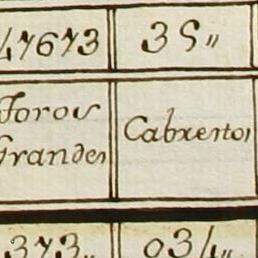 47673 35〃
Toros Grandes Cabrestos
373〃 034〃